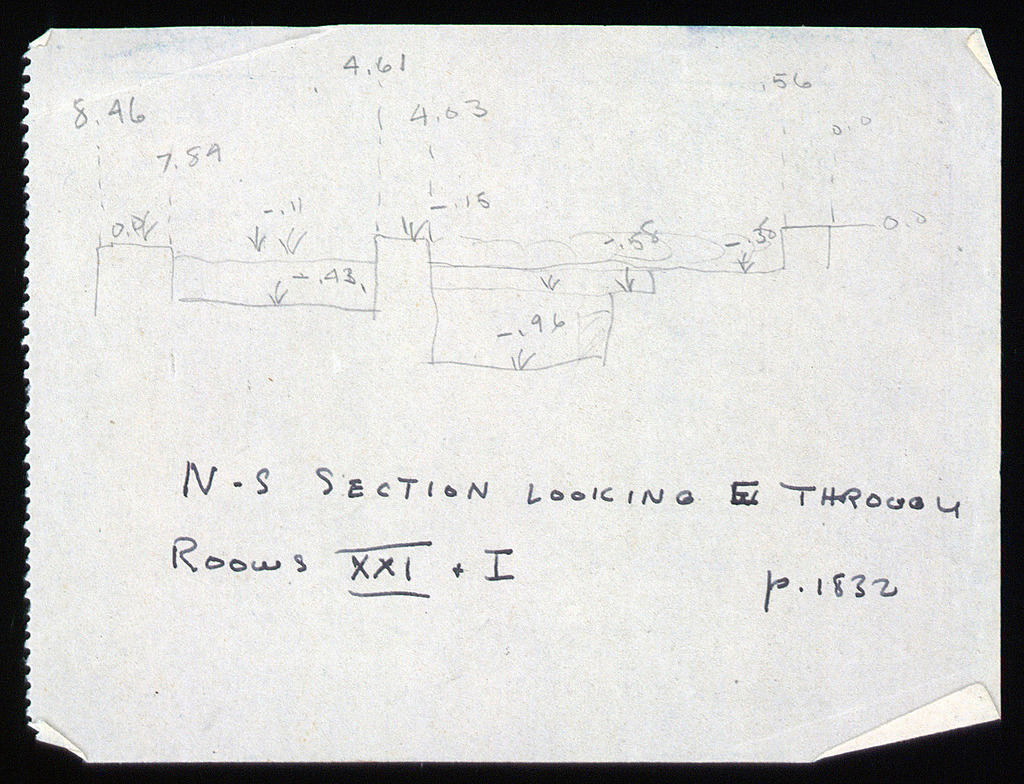 4.61
.56
8.46
4.03
0.0
7.89
-.15
-.11
0.0
-.58
-.30
-.43
-.96
N-S SECTION LOOKING E THROUGH
ROOMS XXI + I
p. 1832